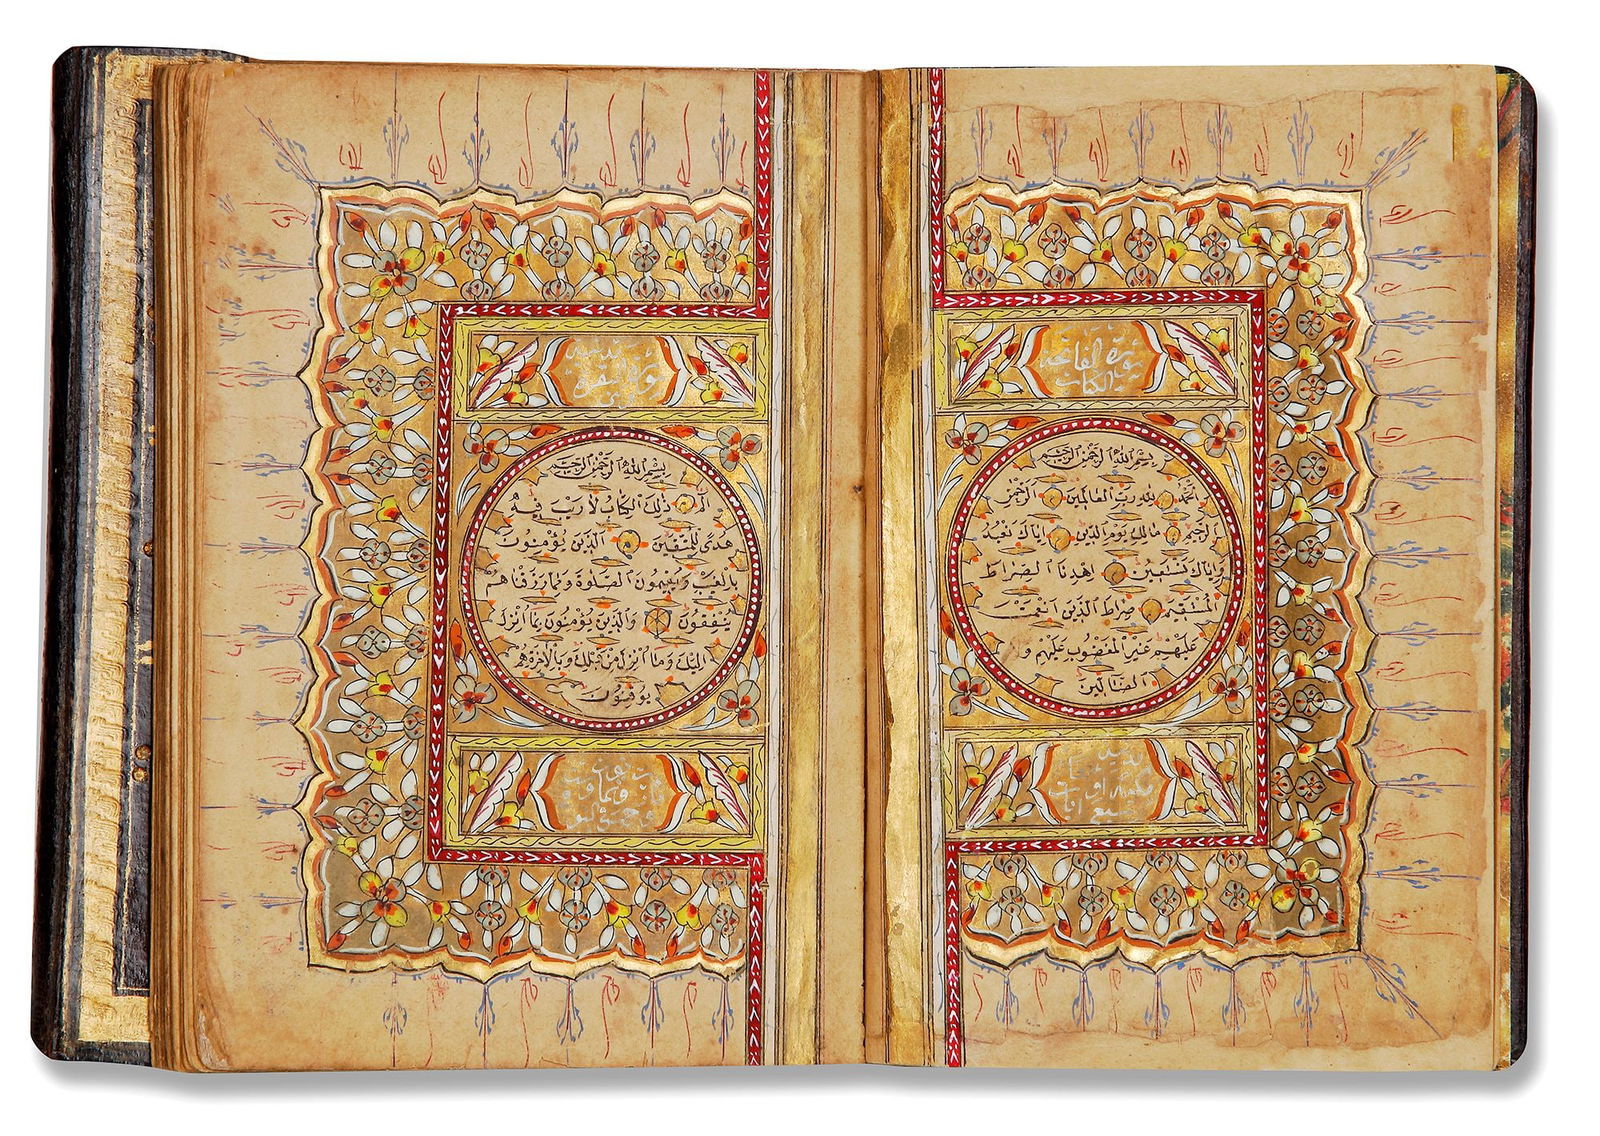 سورة الفاتحة
الكتاب
بسم الله الرحمن الرحيم
الحمد لله رب العالمين الرحمن
الرحيم مالك يوم الدين اياك نعبد
واياك نستعين اهدنا الصراط
المستقيم صراط الذين انعمت
عليهم غير المغضوب عليهم و
لا الضالين
سورة البقرة
بسم الله الرحمن الرحيم
الم ذلك الكتاب لا ريب فيه
هدى للمتقين الذين يؤمنون
بالغيب ويقيمون الصلوة ومما رزقناهم
ينفقون والذين يؤمنون بما انزل
اليك وما انزل من قبلك وبالآخرة هم
يوقنون